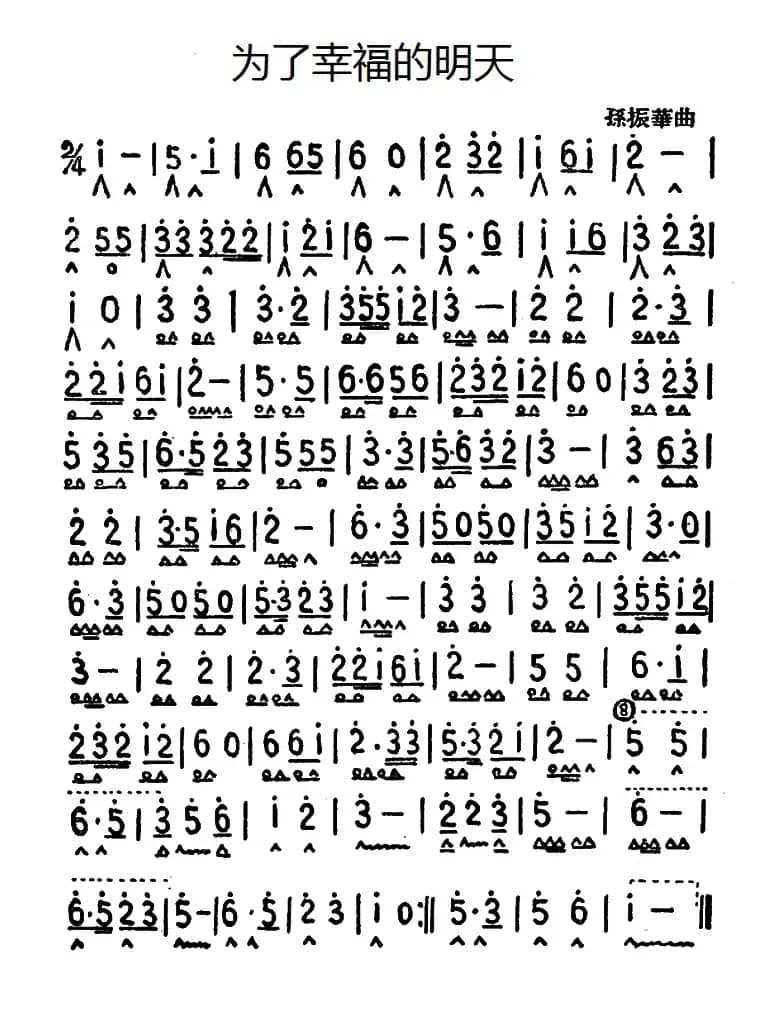 为了幸福的明天
孫振華曲
2/4 i̇ — | 5 · i̇ | 6 65 | 6 0 | 2̇ 3̇2̇ | i̇ 6i̇ | 2̇ — |
2̇ 55 | 3̇3̇ 3̇2̇2̇ | i̇ 2̇i̇ | 6 — | 5 · 6 | i̇ i̇6 | 3̇ 2̇3̇ |
i̇ 0 | 3̇ 3̇ | 3̇ · 2̇ | 3̇5̇5̇ i̇2̇ | 3̇ — | 2̇ 2̇ | 2̇ · 3̇ |
2̇2̇i̇ 6i̇ | 2̇ — | 5 · 5 | 6·6 56 | 2̇3̇2̇ i̇2̇ | 6 0 | 3̇ 2̇3̇ |
5̇ 3̇5̇ | 6̇·5̇ 2̇3̇ | 5̇ 55 | 3̇ · 3̇ | 5̇·6̇ 3̇2̇ | 3̇ — | 3̇ 63̇ |
2̇ 2̇ | 3̇·5̇ i̇6 | 2̇ — | 6̇ · 3̇ | 5̇0 5̇0 | 3̇5̇ i̇2̇ | 3̇ · 0 |
6̇ · 3̇ | 5̇0 5̇0 | 5̇·3̇ 2̇3̇ | i̇ — | 3̇ 3̇ | 3̇ 2̇ | 3̇5̇5̇ i̇2̇ |
3̇ — | 2̇ 2̇ | 2̇ · 3̇ | 2̇2̇i̇ 6i̇ | 2̇ — | 5 5 | 6 · i̇ |
⑧
2̇3̇2̇ i̇2̇ | 6 0 | 6 6i̇ | 2̇ · 3̇3̇ | 5̇·3̇ 2̇i̇ | 2̇ — | 5̇ 5̇ |
6̇ · 5̇ | 3̇ 5̇ 6̇ | i̇ 2̇ | 3̇ — | 2̇ 2̇ 3̇ | 5̇ — | 6̇ — |
6̇·5̇ 2̇3̇ | 5̇ — | 6̇ · 5̇ | 2̇ 3̇ | i̇ 0 :|| 5̇ · 3̇ | 5̇ 6̇ | i̇ — ||